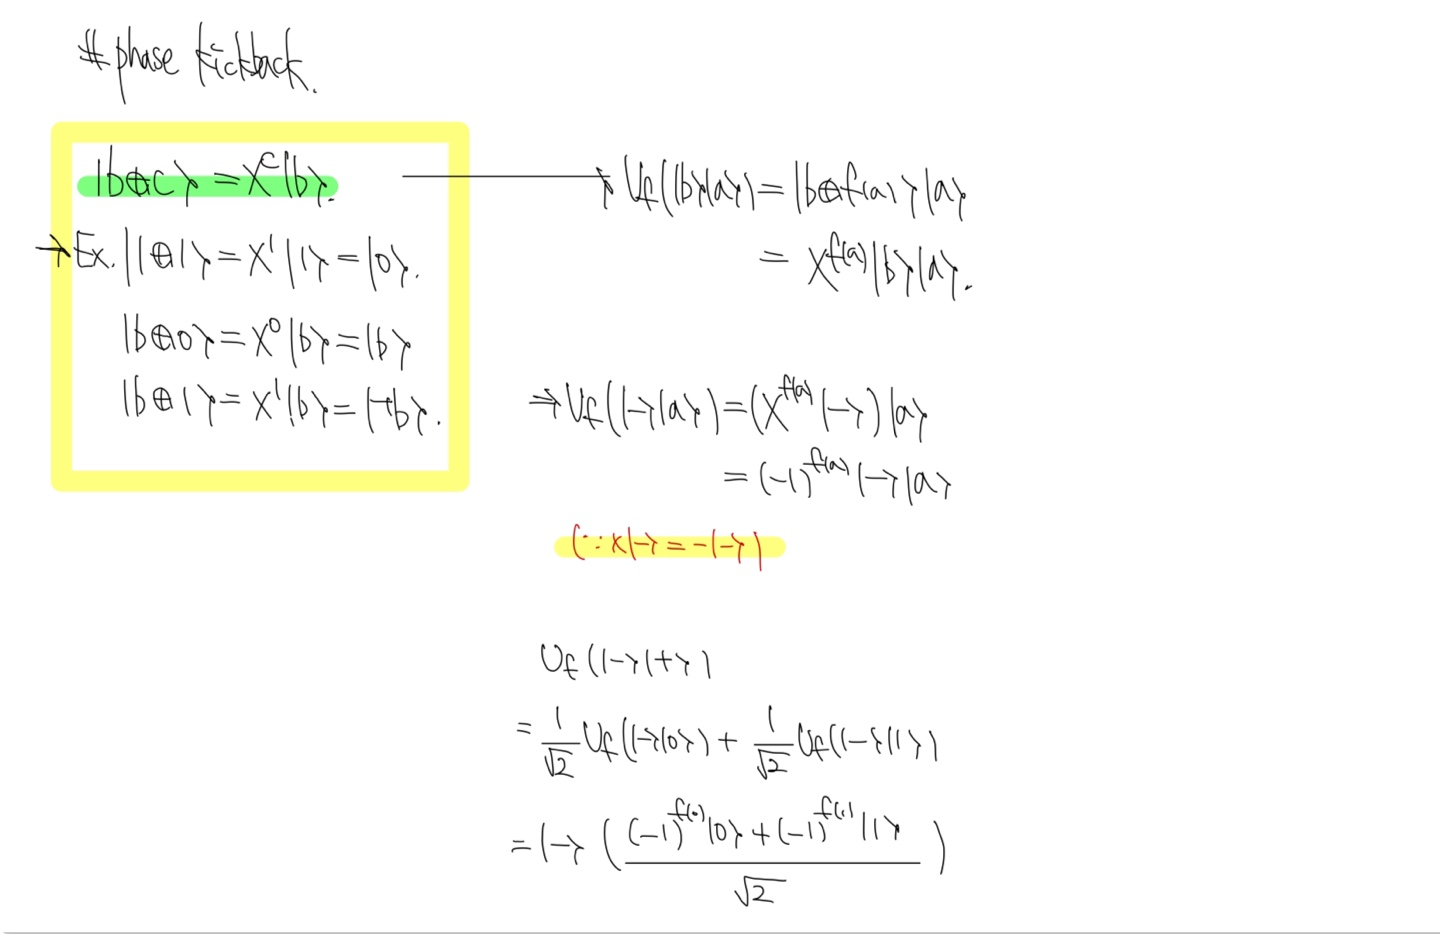 # phase kickback.
|b⊕c⟩ = X^c|b⟩.
→ Ex. |1⊕1⟩ = X^1|1⟩ = |0⟩.
|b⊕0⟩ = X^0|b⟩ = |b⟩
|b⊕1⟩ = X^1|b⟩ = |¬b⟩.
→ U_f(|b⟩|a⟩) = |b⊕f(a)⟩|a⟩
= X^{f(a)}|b⟩|a⟩.
⇒ U_f(|-⟩|a⟩) = (X^{f(a)}|-⟩)|a⟩
= (-1)^{f(a)}|-⟩|a⟩
(∵ X|-⟩ = -|-⟩)
U_f(|-⟩|+⟩)
= \frac{1}{√2} U_f(|-⟩|0⟩) + \frac{1}{√2} U_f(|-⟩|1⟩)
= |-⟩ ( \frac{(-1)^{f(0)}|0⟩ + (-1)^{f(1)}|1⟩}{√2} )